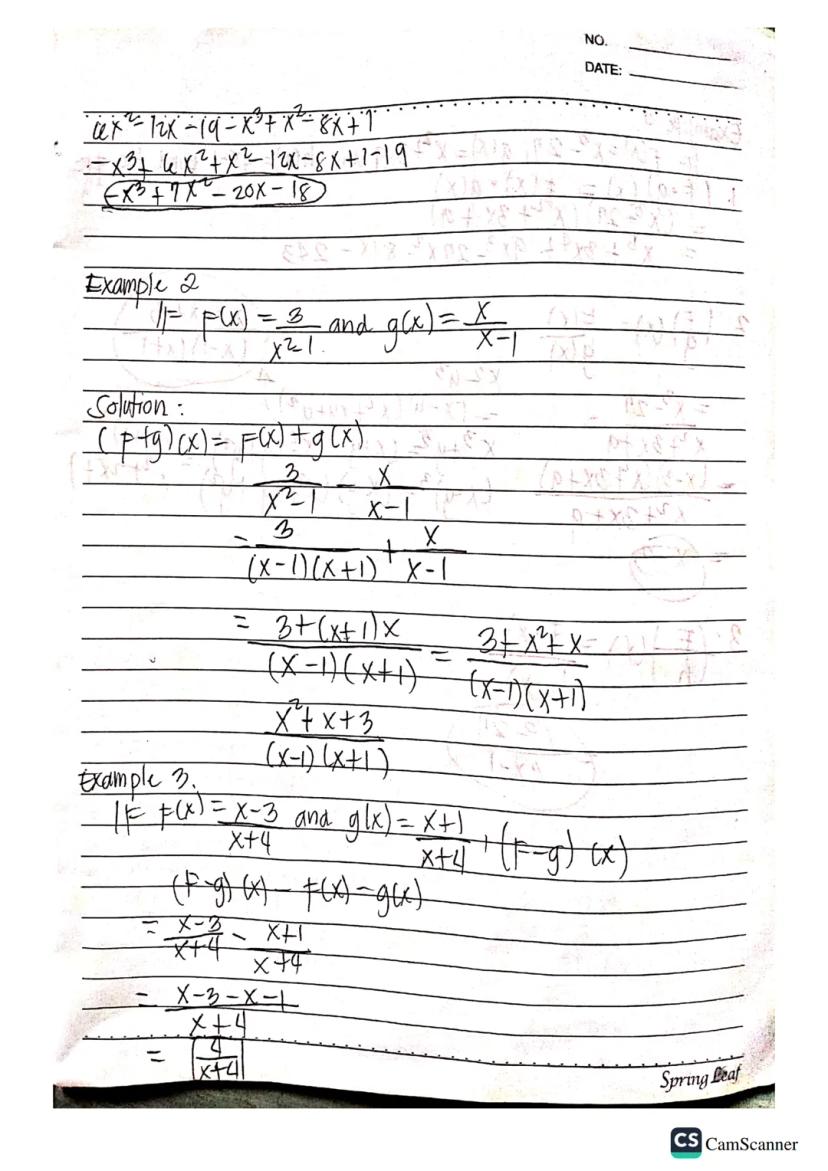 NO.
DATE:
6x² - 12x - 19 - x³ + x² - 8x + 1
- x³ + 6x² + x² - 12x - 8x + 1 - 19
- x³ + 7x² - 20x - 18
Example 2
IF F(x) = 3/(x²-1) and g(x) = x/(x-1)
Solution :
(F+g)(x) = F(x) + g(x)
3/(x²-1) - x/(x-1)
= 3/((x-1)(x+1)) + x/(x-1)
= (3+(x+1)x)/((x-1)(x+1)) = (3+x²+x)/((x-1)(x+1))
(x²+x+3)/((x-1)(x+1))
Example 3.
IF F(x) = (x-3)/(x+4) and g(x) = (x+1)/(x+4) , (F-g)(x)
(F-g)(x) - F(x) - g(x)
= (x-3)/(x+4) - (x+1)/(x+4)
= (x-3-x-1)/(x+4)
= 4/(x+4)
Spring Leaf
CS CamScanner